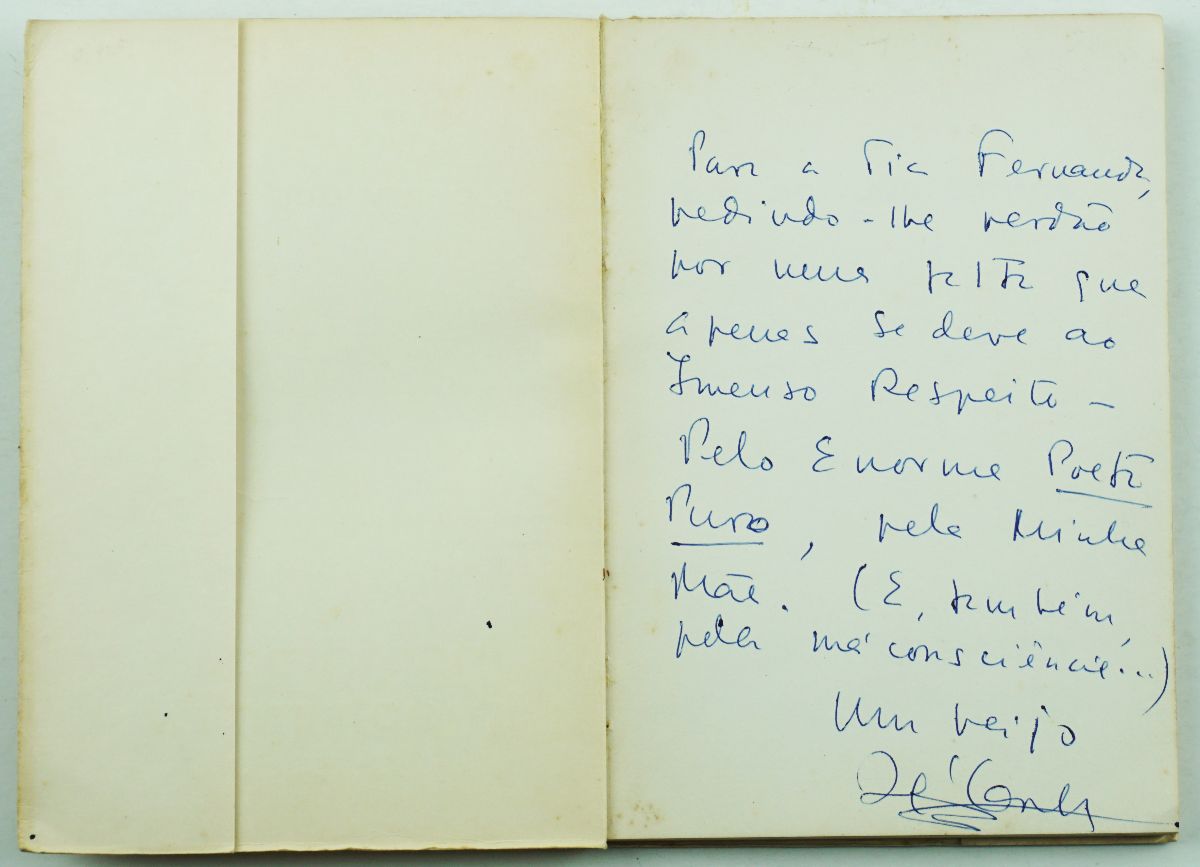 Para a Tia Fernanda,
pedindo-lhe perdão
por uma falta que
apenas se deve ao
Imenso Respeito –
Pelo Enorme Poeta
Puro, pela Minha
Mãe. (E, também,
pela má consciência...)
Um beijo
Zé